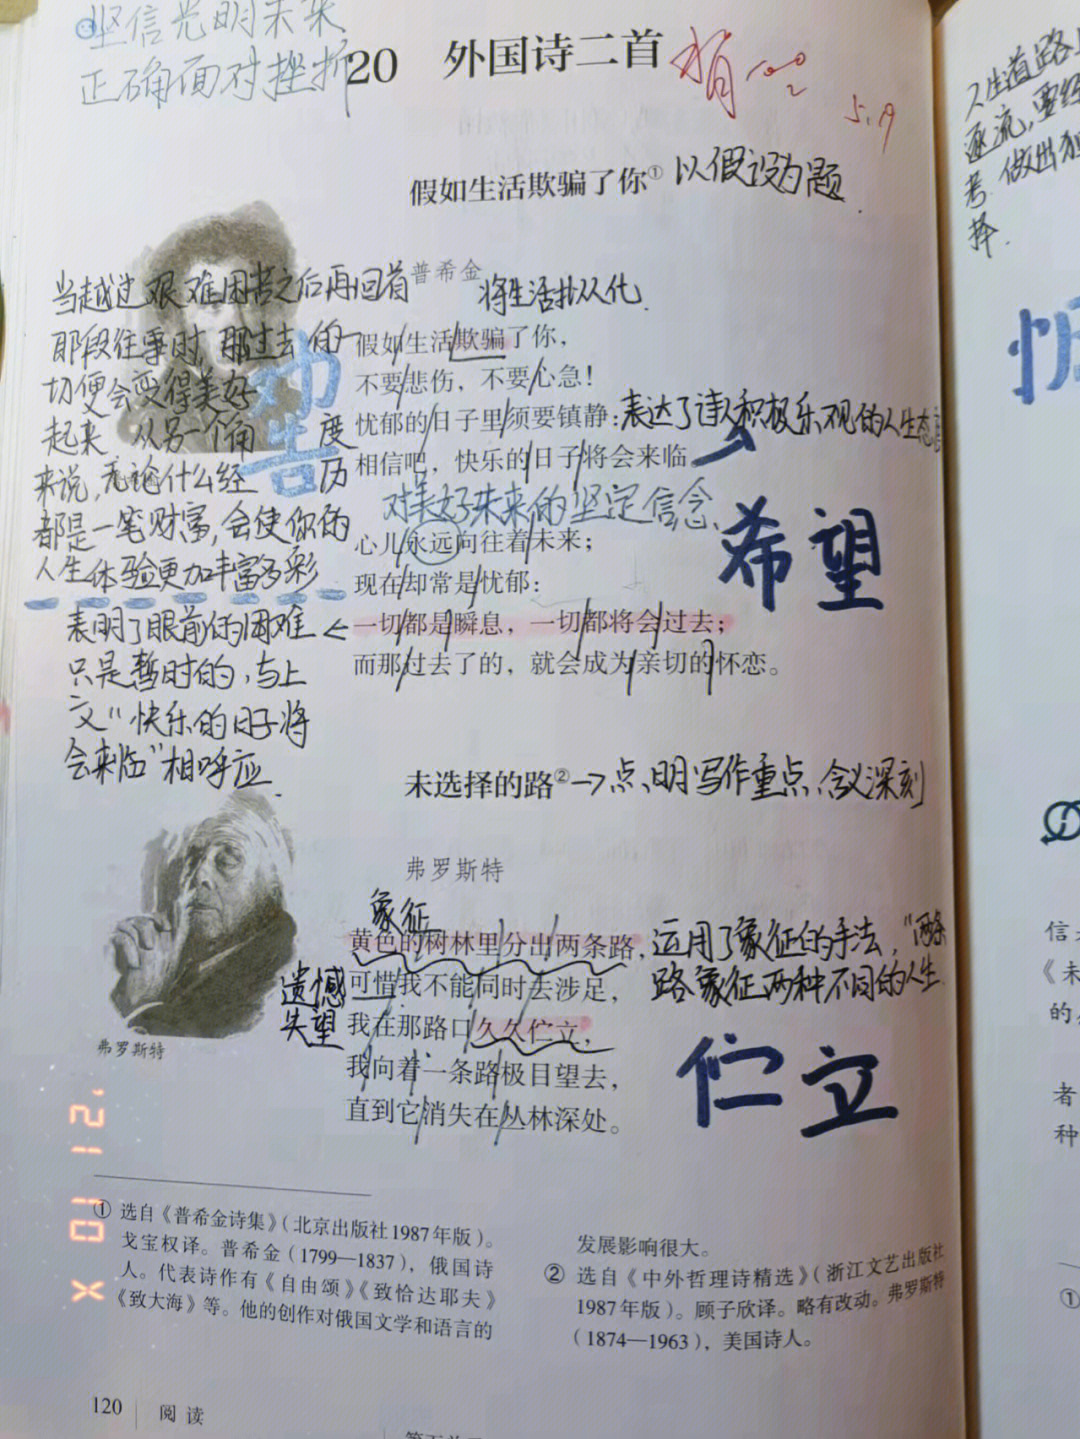 坚信光明未来
正确面对挫折
20 外国诗二首
5.9
假如生活欺骗了你① 以假设为题
普希金
将生活拟人化
当越过艰难困苦之后再回首
那段往事时,那过去的一
切便会变得美好
起来 从另一个角度
来说,无论什么经历
都是一笔财富,会使你的
人生体验更加丰富多彩
劝告
假如生活欺骗了你,
不要悲伤,不要心急!
忧郁的日子里须要镇静:
表达了诗人积极乐观的人生态度
相信吧,快乐的日子将会来临
对美好未来的坚定信念
希望
心儿永远向往着未来;
现在却常是忧郁:
一切都是瞬息,一切都将会过去;
而那过去了的,就会成为亲切的怀恋。
表明了眼前的困难
只是暂时的,与上
文“快乐的日子将
会来临”相呼应
未选择的路②→点明写作重点,含义深刻
弗罗斯特
象征
黄色的树林里分出两条路,
可惜我不能同时去涉足,
我在那路口久久伫立,
我向着一条路极目望去,
直到它消失在丛林深处。
遗憾
失望
运用了象征的手法,“两条
路”象征两种不同的人生
伫立
弗罗斯特
① 选自《普希金诗集》(北京出版社1987年版)。
戈宝权译。普希金(1799—1837),俄国诗
人。代表诗作有《自由颂》《致恰达耶夫》
《致大海》等。他的创作对俄国文学和语言的
发展影响很大。
② 选自《中外哲理诗精选》(浙江文艺出版社
1987年版)。顾子欣译。略有改动。弗罗斯特
(1874—1963),美国诗人。
120 阅读
人生道路
逐流,要经
考 做出
择.
信
《未
的
者
种
①